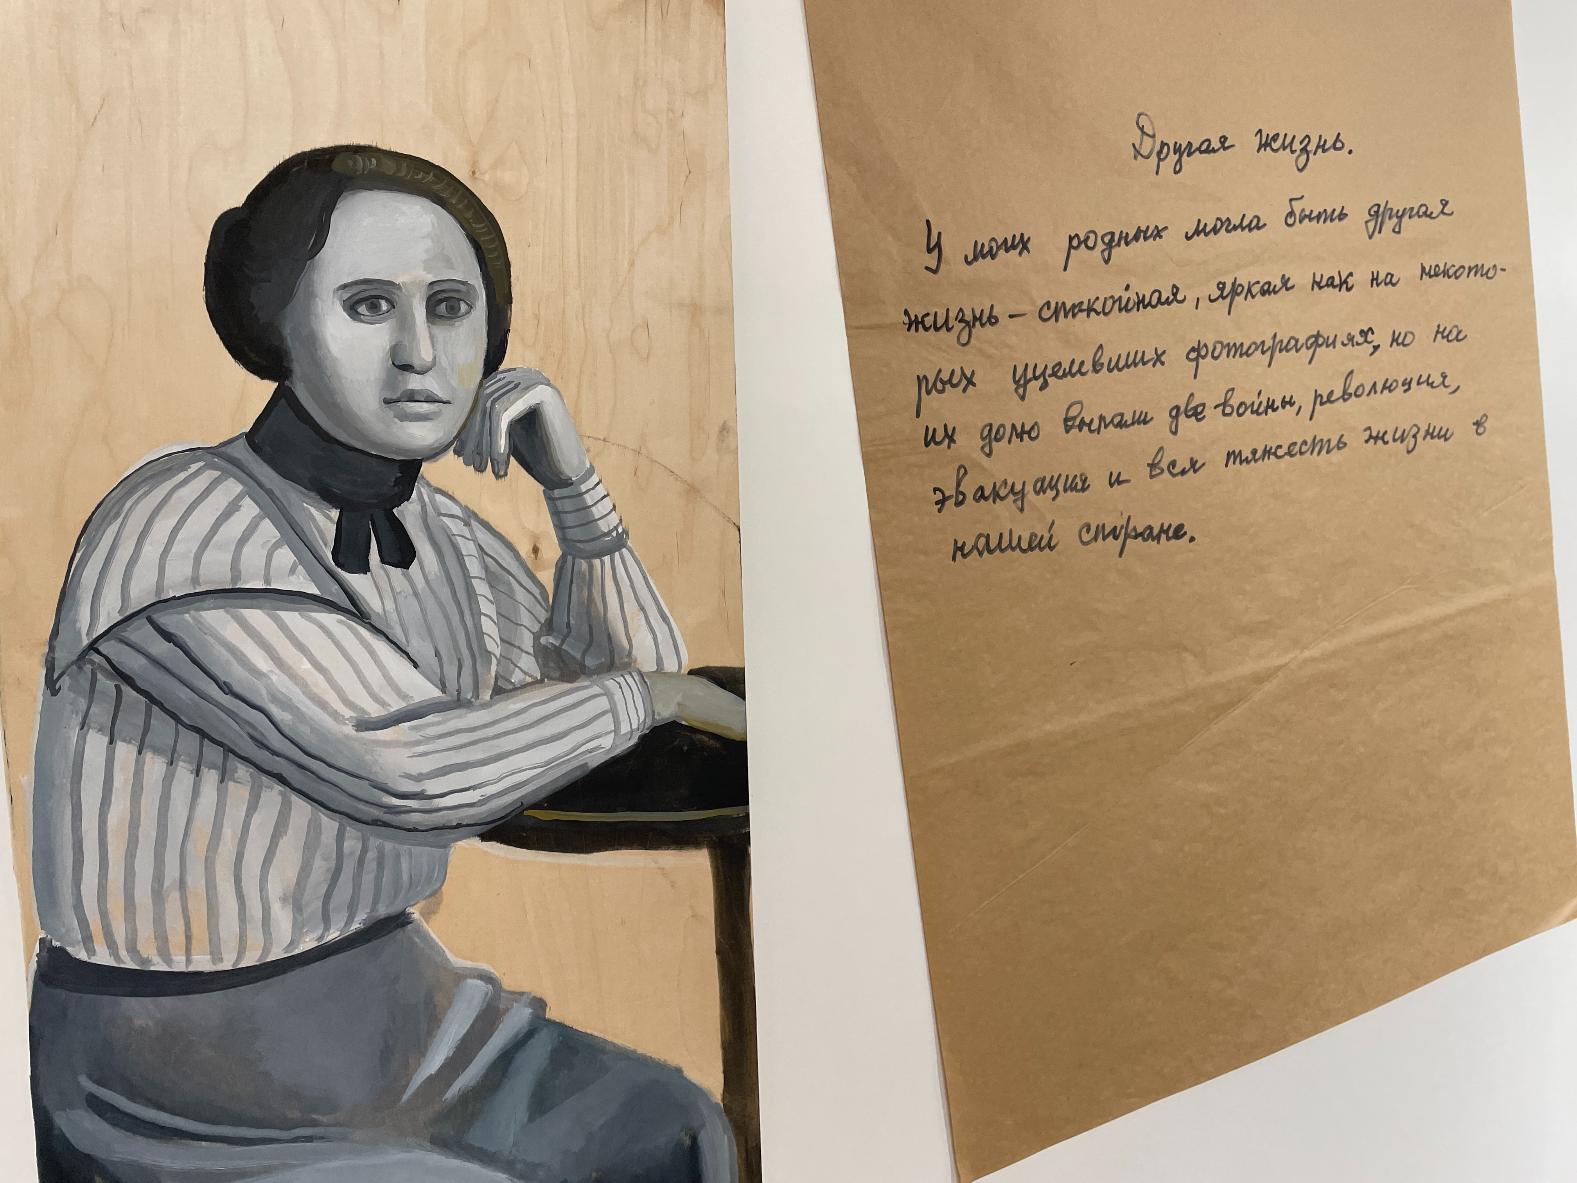 Другая жизнь.
У моих родных могла быть другая
жизнь – спокойная, яркая как на некото-
рых уцелевших фотографиях, но на
их долю выпали две войны, революция,
эвакуация и вся тяжесть жизни в
нашей стране.